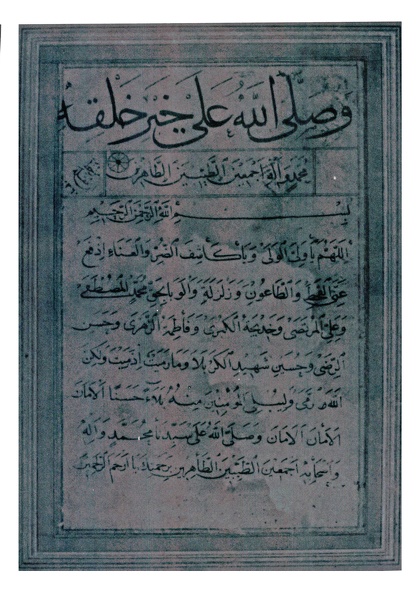 وَصَلَّى اللهُ عَلَى خَيْرِ خَلْقِهِ
مُحَمَّدٍ وَآلِهِ أَجْمَعِينَ الطَّيِّبِينَ الطَّاهِرِينَ
بِسْمِ اللهِ الرَّحْمٰنِ الرَّحِيمِ
اَللّٰهُمَّ يَا وَلِيَّ الْوَلَاءِ وَيَا كَاشِفَ الضُّرِّ وَالْعَنَاءِ اِدْفَعْ
عَنَّا الْقَحْطَ وَالطَّاعُونَ وَزَلْزَلَةَ وَالْوَبَا بِحَقِّ مُحَمَّدٍ الْمُصْطَفَى
وَعَلِيِّ الْمُرْتَضَى وَخَدِيجَةَ الْكُبْرَى وَفَاطِمَةَ الزَّهْرَى وَحَسَنِ
الرِّضَى وَحُسَيْنٍ شَهِيدِ الْكَرْبَلَا وَمَا رَمَيْتَ إِذْ رَمَيْتَ وَلٰكِنَّ
اللهَ رَمَى وَلِيُبْلِيَ الْمُؤْمِنِينَ مِنْهُ بَلَاءً حَسَنًا الْأَمَانَ
الْأَمَانَ الْأَمَانَ وَصَلَّى اللهُ عَلَى سَيِّدِنَا مُحَمَّدٍ وَآلِهِ
وَأَصْحَابِهِ أَجْمَعِينَ الطَّيِّبِينَ الطَّاهِرِينَ بِرَحْمَتِكَ يَا أَرْحَمَ الرَّاحِمِينَ